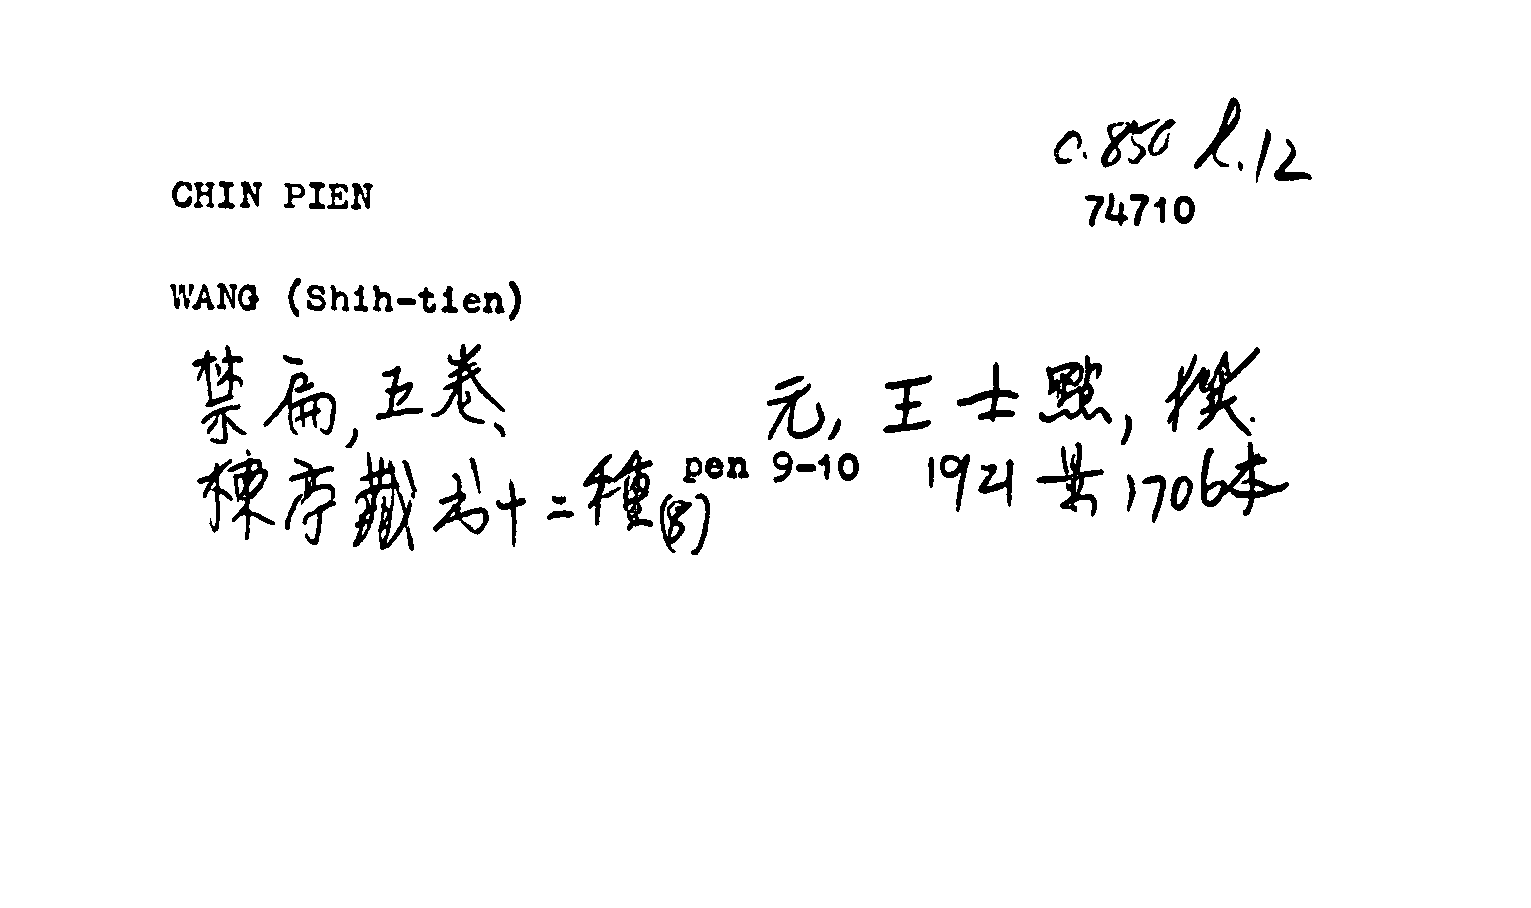 c.850 l.12
CHIN PIEN
74710
WANG (Shih-tien)
禁扁,五卷、 元,王士點,撰.
棟亭藏书十二種(8) pen 9-10 1921 共1706本